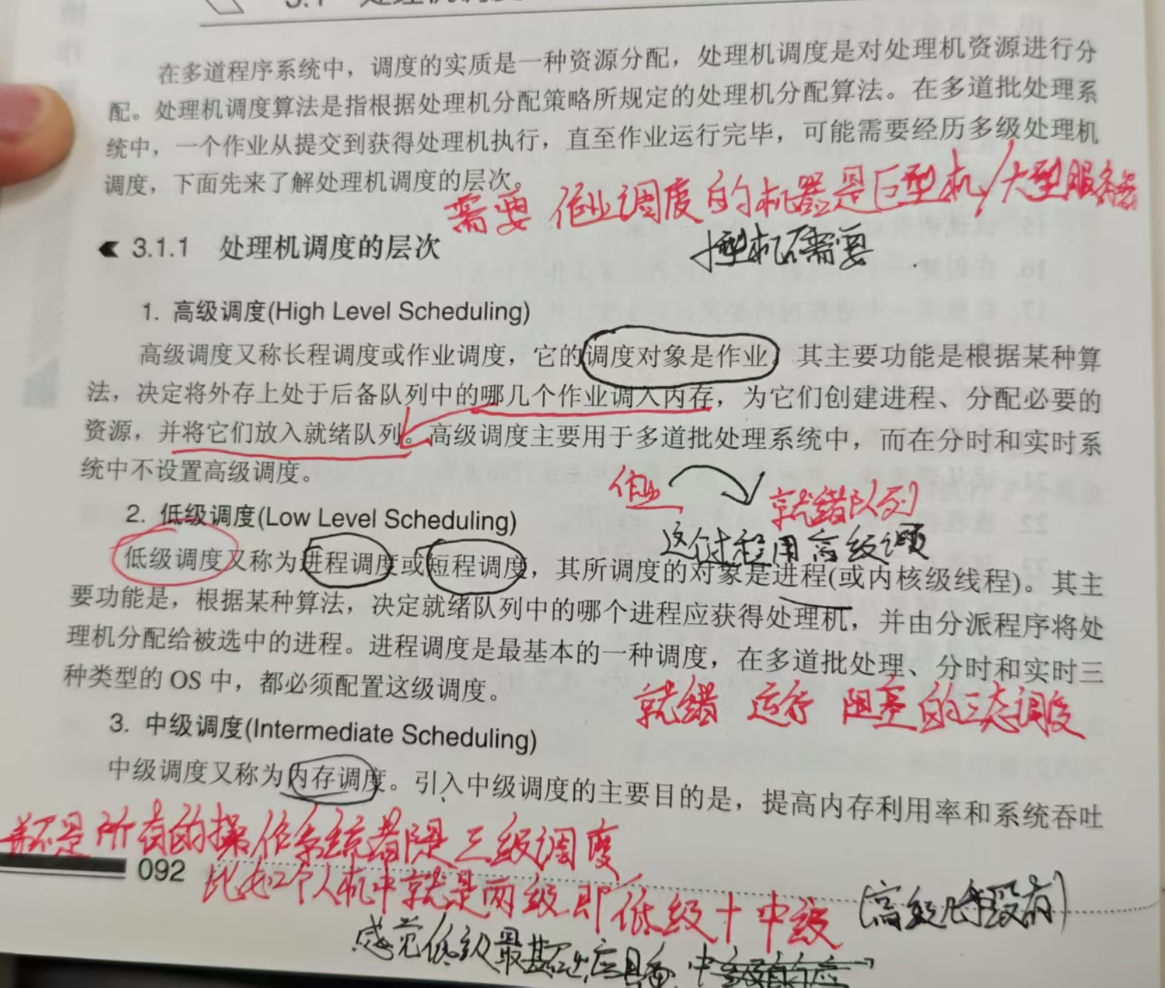 3.1 处理机调度
在多道程序系统中，调度的实质是一种资源分配，处理机调度是对处理机资源进行分
配。处理机调度算法是指根据处理机分配策略所规定的处理机分配算法。在多道批处理系
统中，一个作业从提交到获得处理机执行，直至作业运行完毕，可能需要经历多级处理机
调度，下面先来了解处理机调度的层次。
需要 作业调度的机器是巨型机/大型服务器
机不需要
3.1.1 处理机调度的层次
1. 高级调度(High Level Scheduling)
高级调度又称长程调度或作业调度，它的调度对象是作业。其主要功能是根据某种算
法，决定将外存上处于后备队列中的哪几个作业调入内存，为它们创建进程、分配必要的
资源，并将它们放入就绪队列。高级调度主要用于多道批处理系统中，而在分时和实时系
统中不设置高级调度。
作业 就绪队列
这个过程用高级调度
2. 低级调度(Low Level Scheduling)
低级调度又称为进程调度或短程调度，其所调度的对象是进程(或内核级线程)。其主
要功能是，根据某种算法，决定就绪队列中的哪个进程应获得处理机，并由分派程序将处
理机分配给被选中的进程。进程调度是最基本的一种调度，在多道批处理、分时和实时三
种类型的 OS 中，都必须配置这级调度。
就绪 运行 阻塞的三态调度
3. 中级调度(Intermediate Scheduling)
中级调度又称为内存调度。引入中级调度的主要目的是，提高内存利用率和系统吞吐
并不是所有的操作系统都是三级调度
092
比如个人机中就是两级即低级+中级(高级没有)
感觉低级最基础应具备